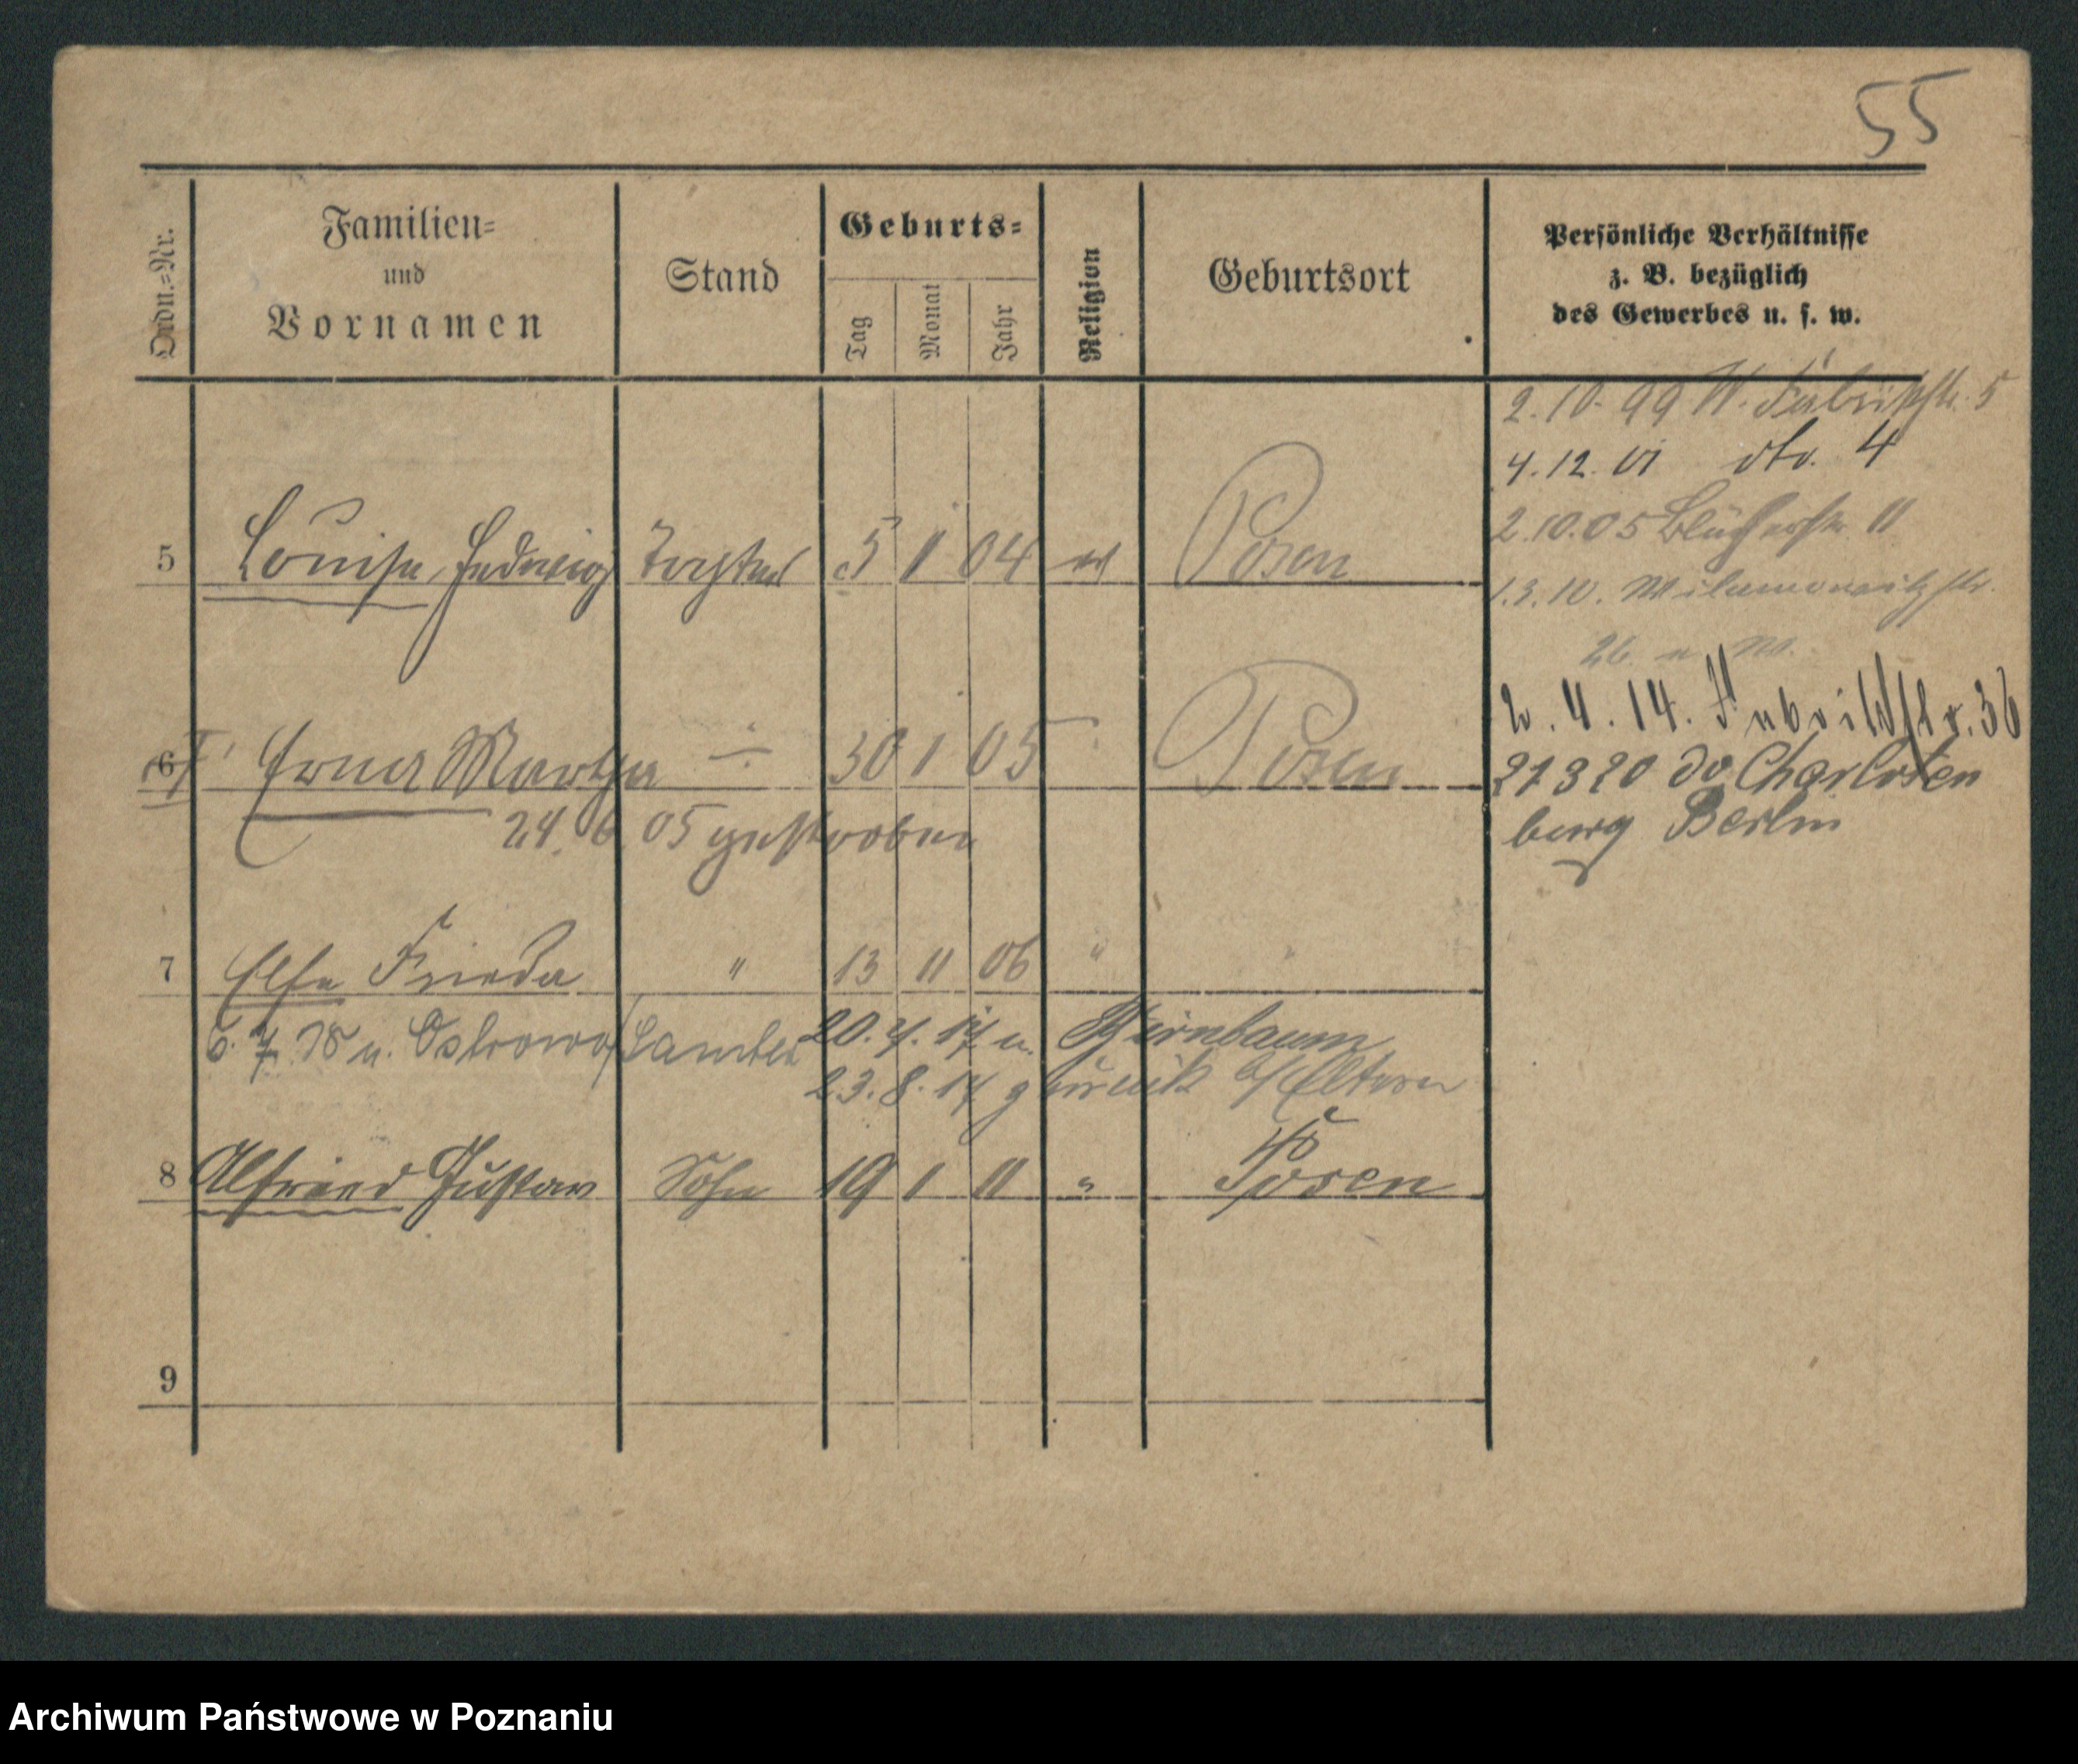 55
Ordn.=Nr.
Familien=
und
Vornamen
Stand
Geburts=
Tag
Monat
Jahr
Religion
Geburtsort
Persönliche Verhältnisse
z. B. bezüglich
des Gewerbes u. s. w.
2.10.99 W. Fabrikstr. 5
4.12.01 dto. 4
2.10.05 Blücherstr. 11
5 Louise, Hedwig Tochter 5 1 04 ev Posen
1.3.10. Wilamowitzstr.
26 n W.
2. 4. 14. Fabrikstr. 36
6 Erna Martha 30 1 05 Posen
21 3 20 do Charlotten
burg Berlin
24. 6. 05 gestorben
7 Else Frieda " 13 11 06 " "
6. 7. 18 n. Ostrowo / Samter 20. 4. 17 n. Birnbaum
23. 8. 17 zurück b/ Eltern
8 Alfried Gustav Sohn 19 1 11 " Posen
9
Archiwum Państwowe w Poznaniu